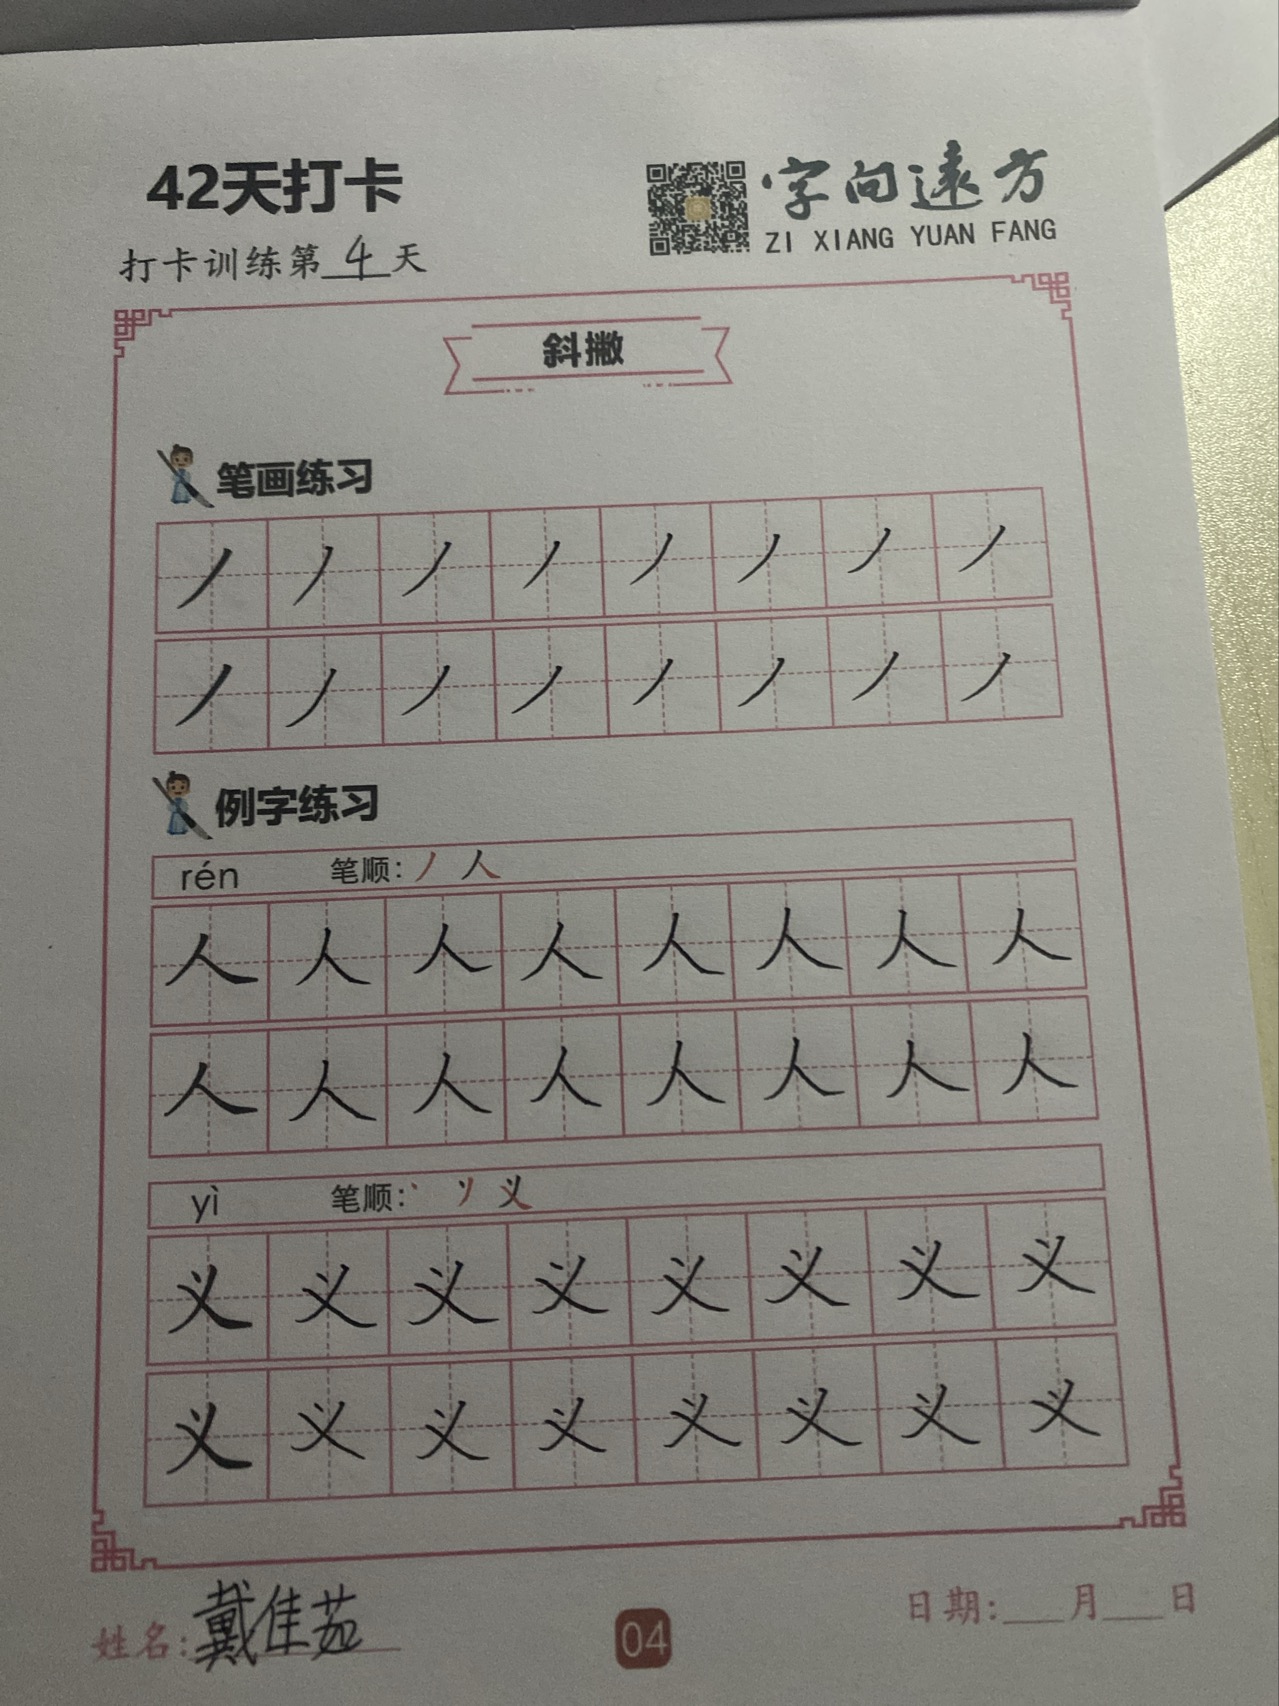 42天打卡
字向遠方
ZI XIANG YUAN FANG
打卡训练第4天
斜撇
笔画练习
丿丿丿丿丿丿丿丿
丿丿丿丿丿丿丿丿
例字练习
rén 笔顺:丿 人
人人人人人人人人
人人人人人人人人
yì 笔顺:丶 丷 义
义义义义义义义义
义义义义义义义义
姓名:戴佳茹
04
日期:___月___日